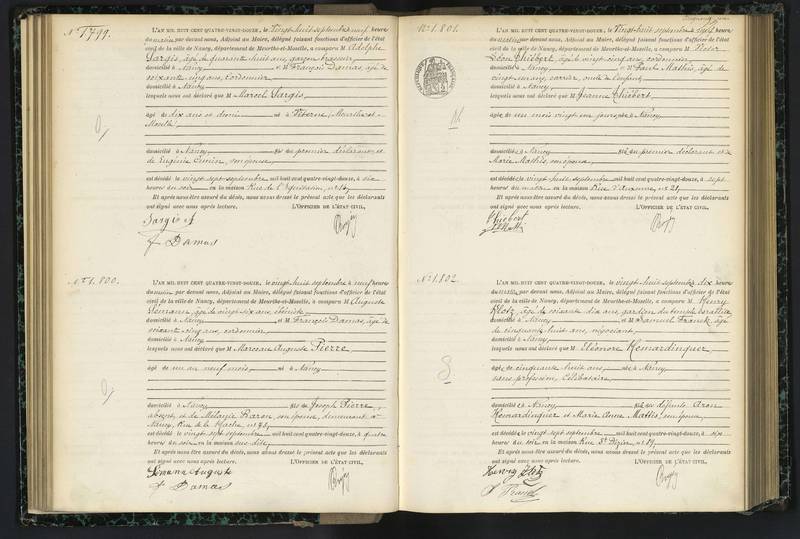 N° 1799.
L'AN MIL HUIT CENT QUATRE-VINGT-DOUZE, le Vingt-huit septembre neuf heure
du matin par devant nous, Adjoint au Maire, délégué faisant fonctions d'officier de l'état
civil de la ville de Nancy, département de Meurthe-et-Moselle, a comparu M Adolphe
Sargis, âgé de quarante huit ans, garçon brasseur,
domicilié à Nancy et M François Damas, âgé de
soixante cinq ans, cordonnier,
domicilié à Nancy
lesquels nous ont déclaré que M Marcel Sargis,
âgé de dix ans et demi né à (Meurthe-et-
Moselle)
domicilié à Nancy fils du premier déclarant et
de Eugénie son épouse,
est décédé le vingt sept septembre mil huit cent quatre-vingt-douze, à dix
heures du soir en la maison Rue de l'Equitation, n°
Et après nous être assuré du décès, nous avons dressé le présent acte que les déclarants
ont signé avec nous après lecture. L'OFFICIER DE L'ÉTAT CIVIL,
Sargis A
F Damas
N° 1.800.
L'AN MIL HUIT CENT QUATRE-VINGT-DOUZE, le vingt-huit septembre à neuf heures
du matin par devant nous, Adjoint au Maire, délégué faisant fonctions d'officier de l'état
civil de la ville de Nancy, département de Meurthe-et-Moselle, a comparu M Auguste
âgé de vingt-six ans, ébéniste
domicilié à Nancy et M François Damas, âgé de
soixante cinq ans, cordonnier,
domicilié à Nancy
lesquels nous ont déclaré que M Marceau Auguste Pierre
âgé de un an neuf mois, né à Nancy
domicilié à Nancy fils de Joseph Pierre,
absent, et de Mélanie Baron, son épouse, demeurant à
Nancy, Rue de la Hache, n°
est décédé le vingt sept septembre mil huit cent quatre-vingt-douze, à quatre
heures du soir en la maison sus-dite,
Et après nous être assuré du décès, nous avons dressé le présent acte que les déclarants
ont signé avec nous après lecture. L'OFFICIER DE L'ÉTAT CIVIL,
Auguste
F Damas
N° 1.801.
L'AN MIL HUIT CENT QUATRE-VINGT-DOUZE, le Vingt-huit septembre
du matin par devant nous, Adjoint au Maire, délégué faisant fonctions d'officier de l'état
civil de la ville de Nancy, département de Meurthe-et-Moselle, a comparu M
Léon Thiébert, âgé de vingt cinq ans, cordonnier,
domicilié à Nancy et M Paul Mathis, âgé de
vingt un ans, carrier, oncle de l'enfant,
domicilié à Nancy,
lesquels nous ont déclaré que M Jeanne Thiébert,
âgée de un mois vingt un jours, née à Nancy,
domiciliée à Nancy fille du premier déclarant et de
Marie Mathis, son épouse,
est décédée le vingt-huit septembre mil huit cent quatre-vingt-douze, à sept
heures du matin en la maison Rue d'Auxonne, n° 21,
Et après nous être assuré du décès, nous avons dressé le présent acte que les déclarants
ont signé avec nous après lecture. L'OFFICIER DE L'ÉTAT CIVIL,
Thiébert
N° 1.802
L'AN MIL HUIT CENT QUATRE-VINGT-DOUZE, le vingt-huit septembre, dix
heures du matin, par devant nous, Adjoint au Maire, délégué faisant fonctions d'officier de l'état
civil de la ville de Nancy, département de Meurthe-et-Moselle, a comparu M. Henry
Klotz, âgé de soixante dix ans, gardien du temple israélite
domicilié à Nancy et M Samuel Franck, âgé
de cinquante huit ans, négociant,
domicilié à Nancy,
lesquels nous ont déclaré que M Eléonore Hemardinquer
âgée de cinquante huit ans, née à Nancy
sans profession, Célibataire
domiciliée à Nancy fille de défunts Aron
Hemardinquer et Marie Anne Mathis, son épouse,
est décédée le vingt-sept septembre mil huit cent quatre-vingt-douze, à six
heures du soir en la maison Rue St Dizier, n° 89,
Et après nous être assuré du décès, nous avons dressé le présent acte que les déclarants
ont signé avec nous après lecture. L'OFFICIER DE L'ÉTAT CIVIL,
Henry Klotz
S Franck